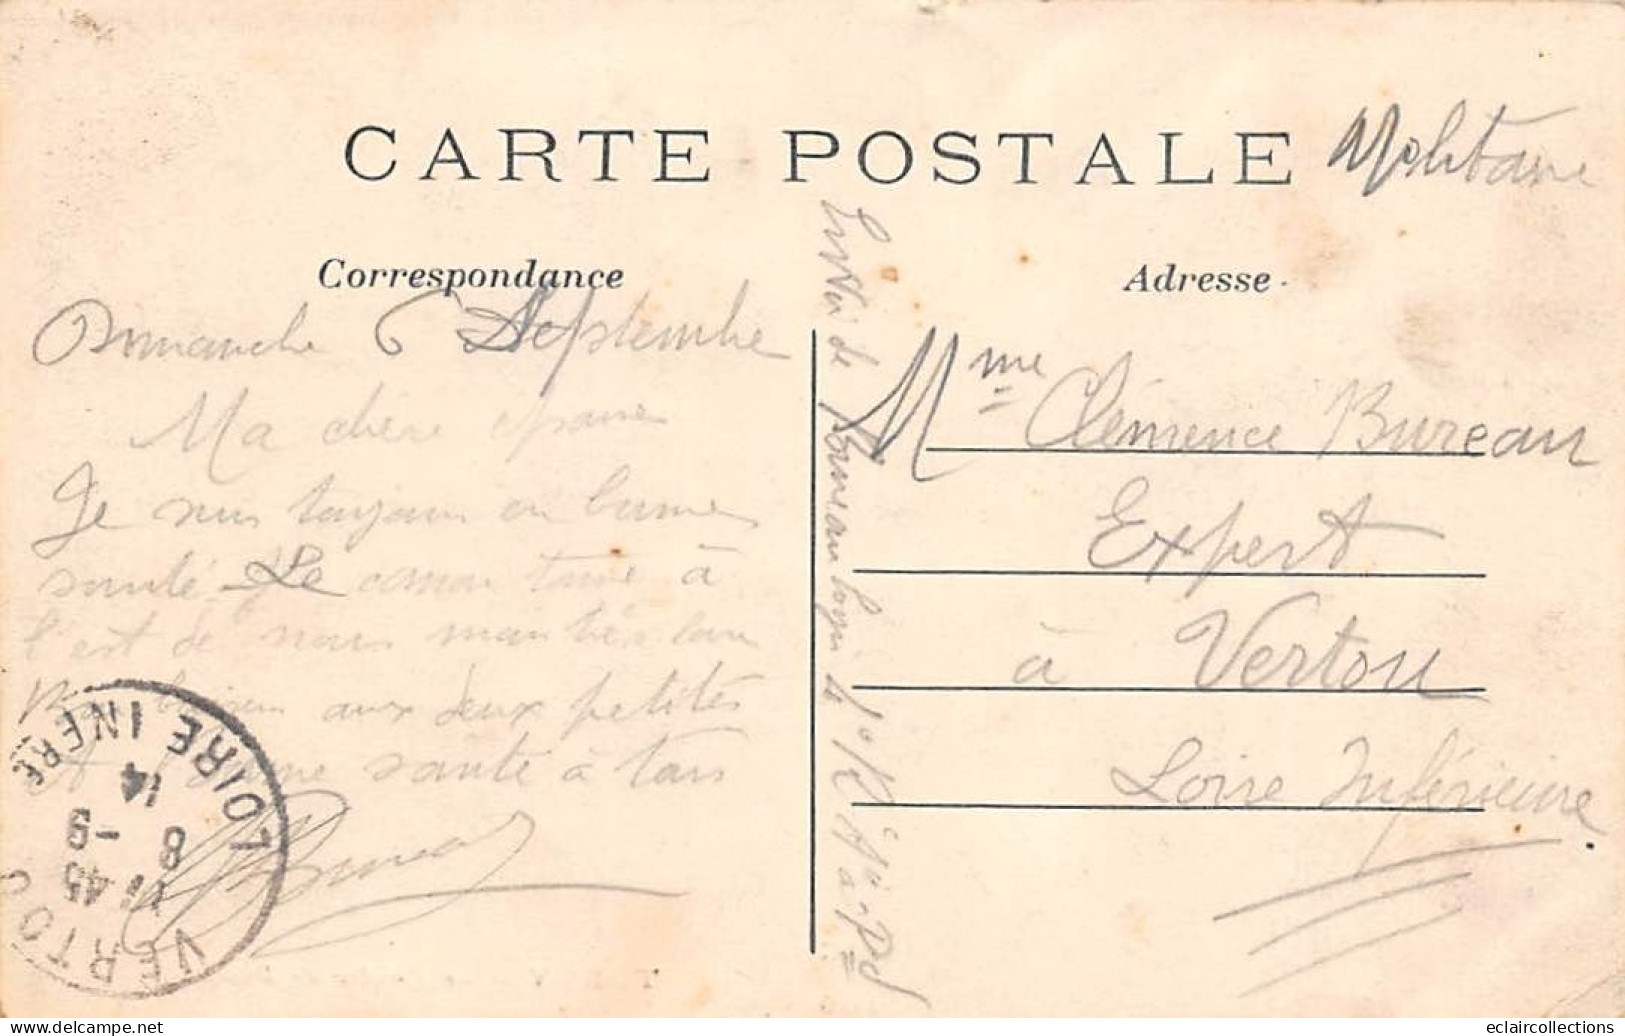 CARTE POSTALE
Militaire
Correspondance
Adresse
Dimanche 6 Septembre
Ma chère épouse
Je suis toujours en bonne
santé Le canon tonne à
l'est de nous
aux deux petites
santé à tous
Bureau
Envoi de Bureau
Mme Clémence Bureau
Expert
à Vertou
Loire Inférieure
VERTOU
11 45
8 -9
14
LOIRE INFRE
eclaircollections